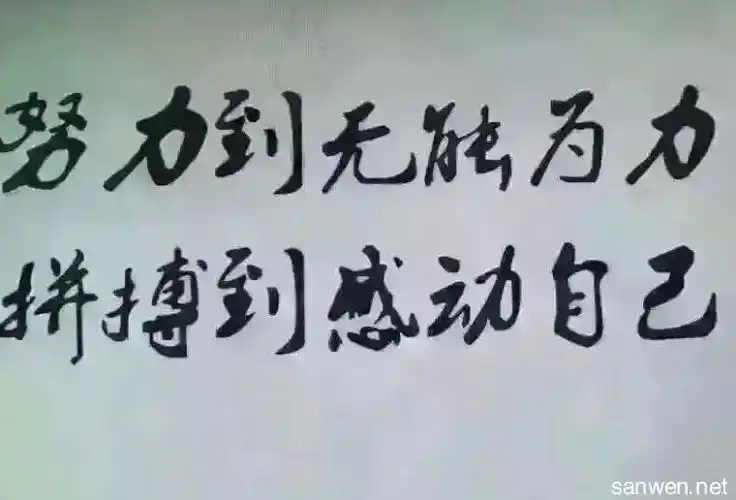 努力到无能为力
拼搏到感动自己
sanwen.net